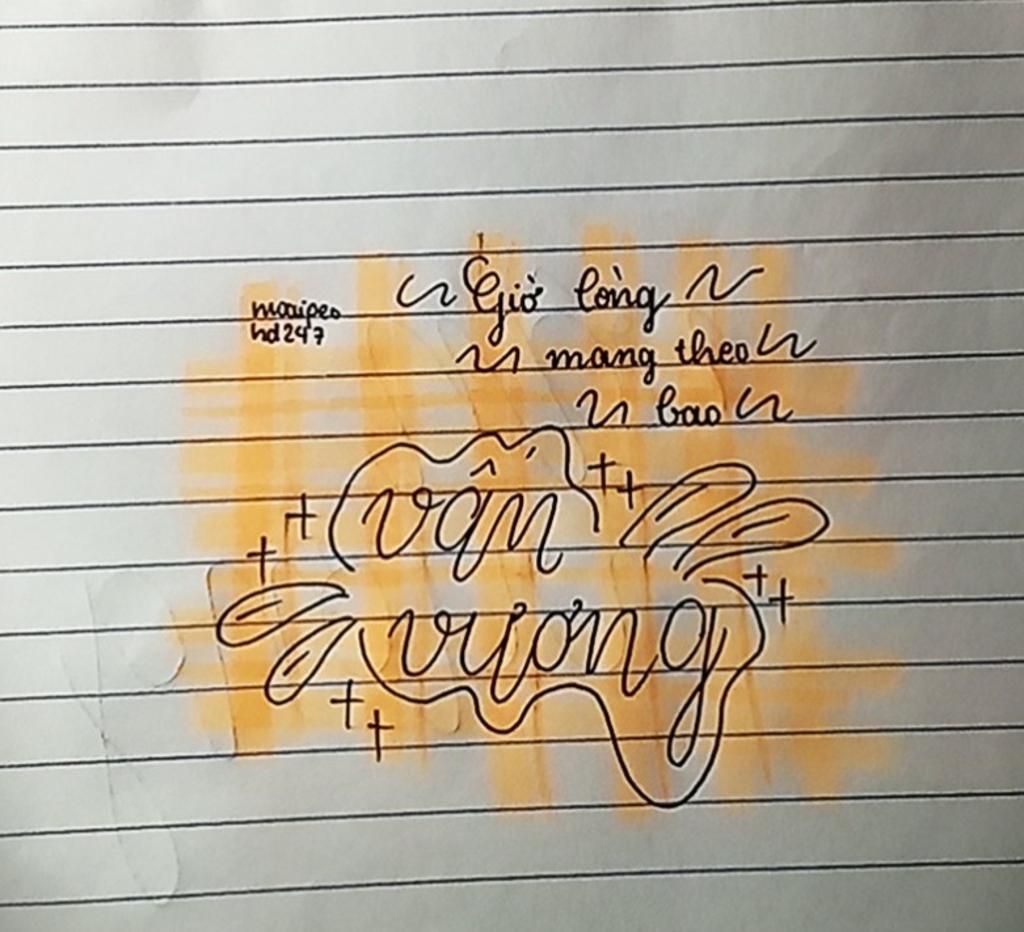 Giờ lòng
maipeo
hd247
mang theo
bao
vấn
vương